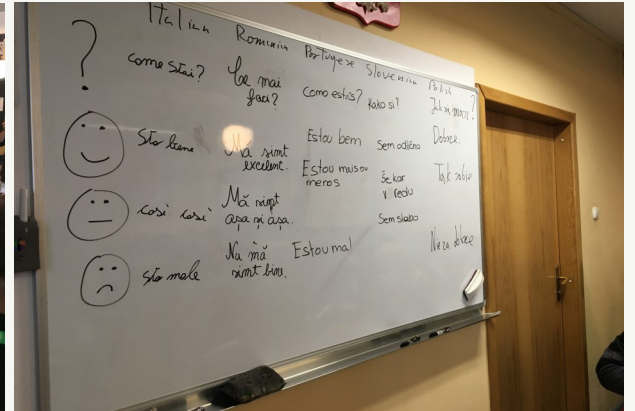 Italian Romania Portugese Slovenian Polish
? come stai? Ce mai faci? Como estás? Kako si? Jak se masz?
sto bene Mă simt excelent. Estou bem Sem odlično Dobrze.
così così Mă simt așa și așa. Estou mais ou menos Še kar v redu Tak sobie
sto male Nu mă simt bine. Estou mal Sem slabo Nie za dobrze